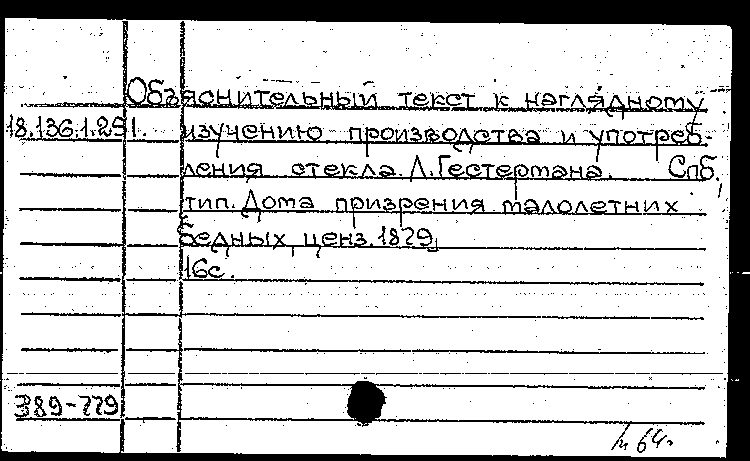 Объяснительный текст к наглядному
18.136.1.251. изучению производства и употреб-
ления стекла. Л.Гестермана. Спб.,
тип. Дома призрения малолетних
бедных, ценз. 1879
16с.
389-779